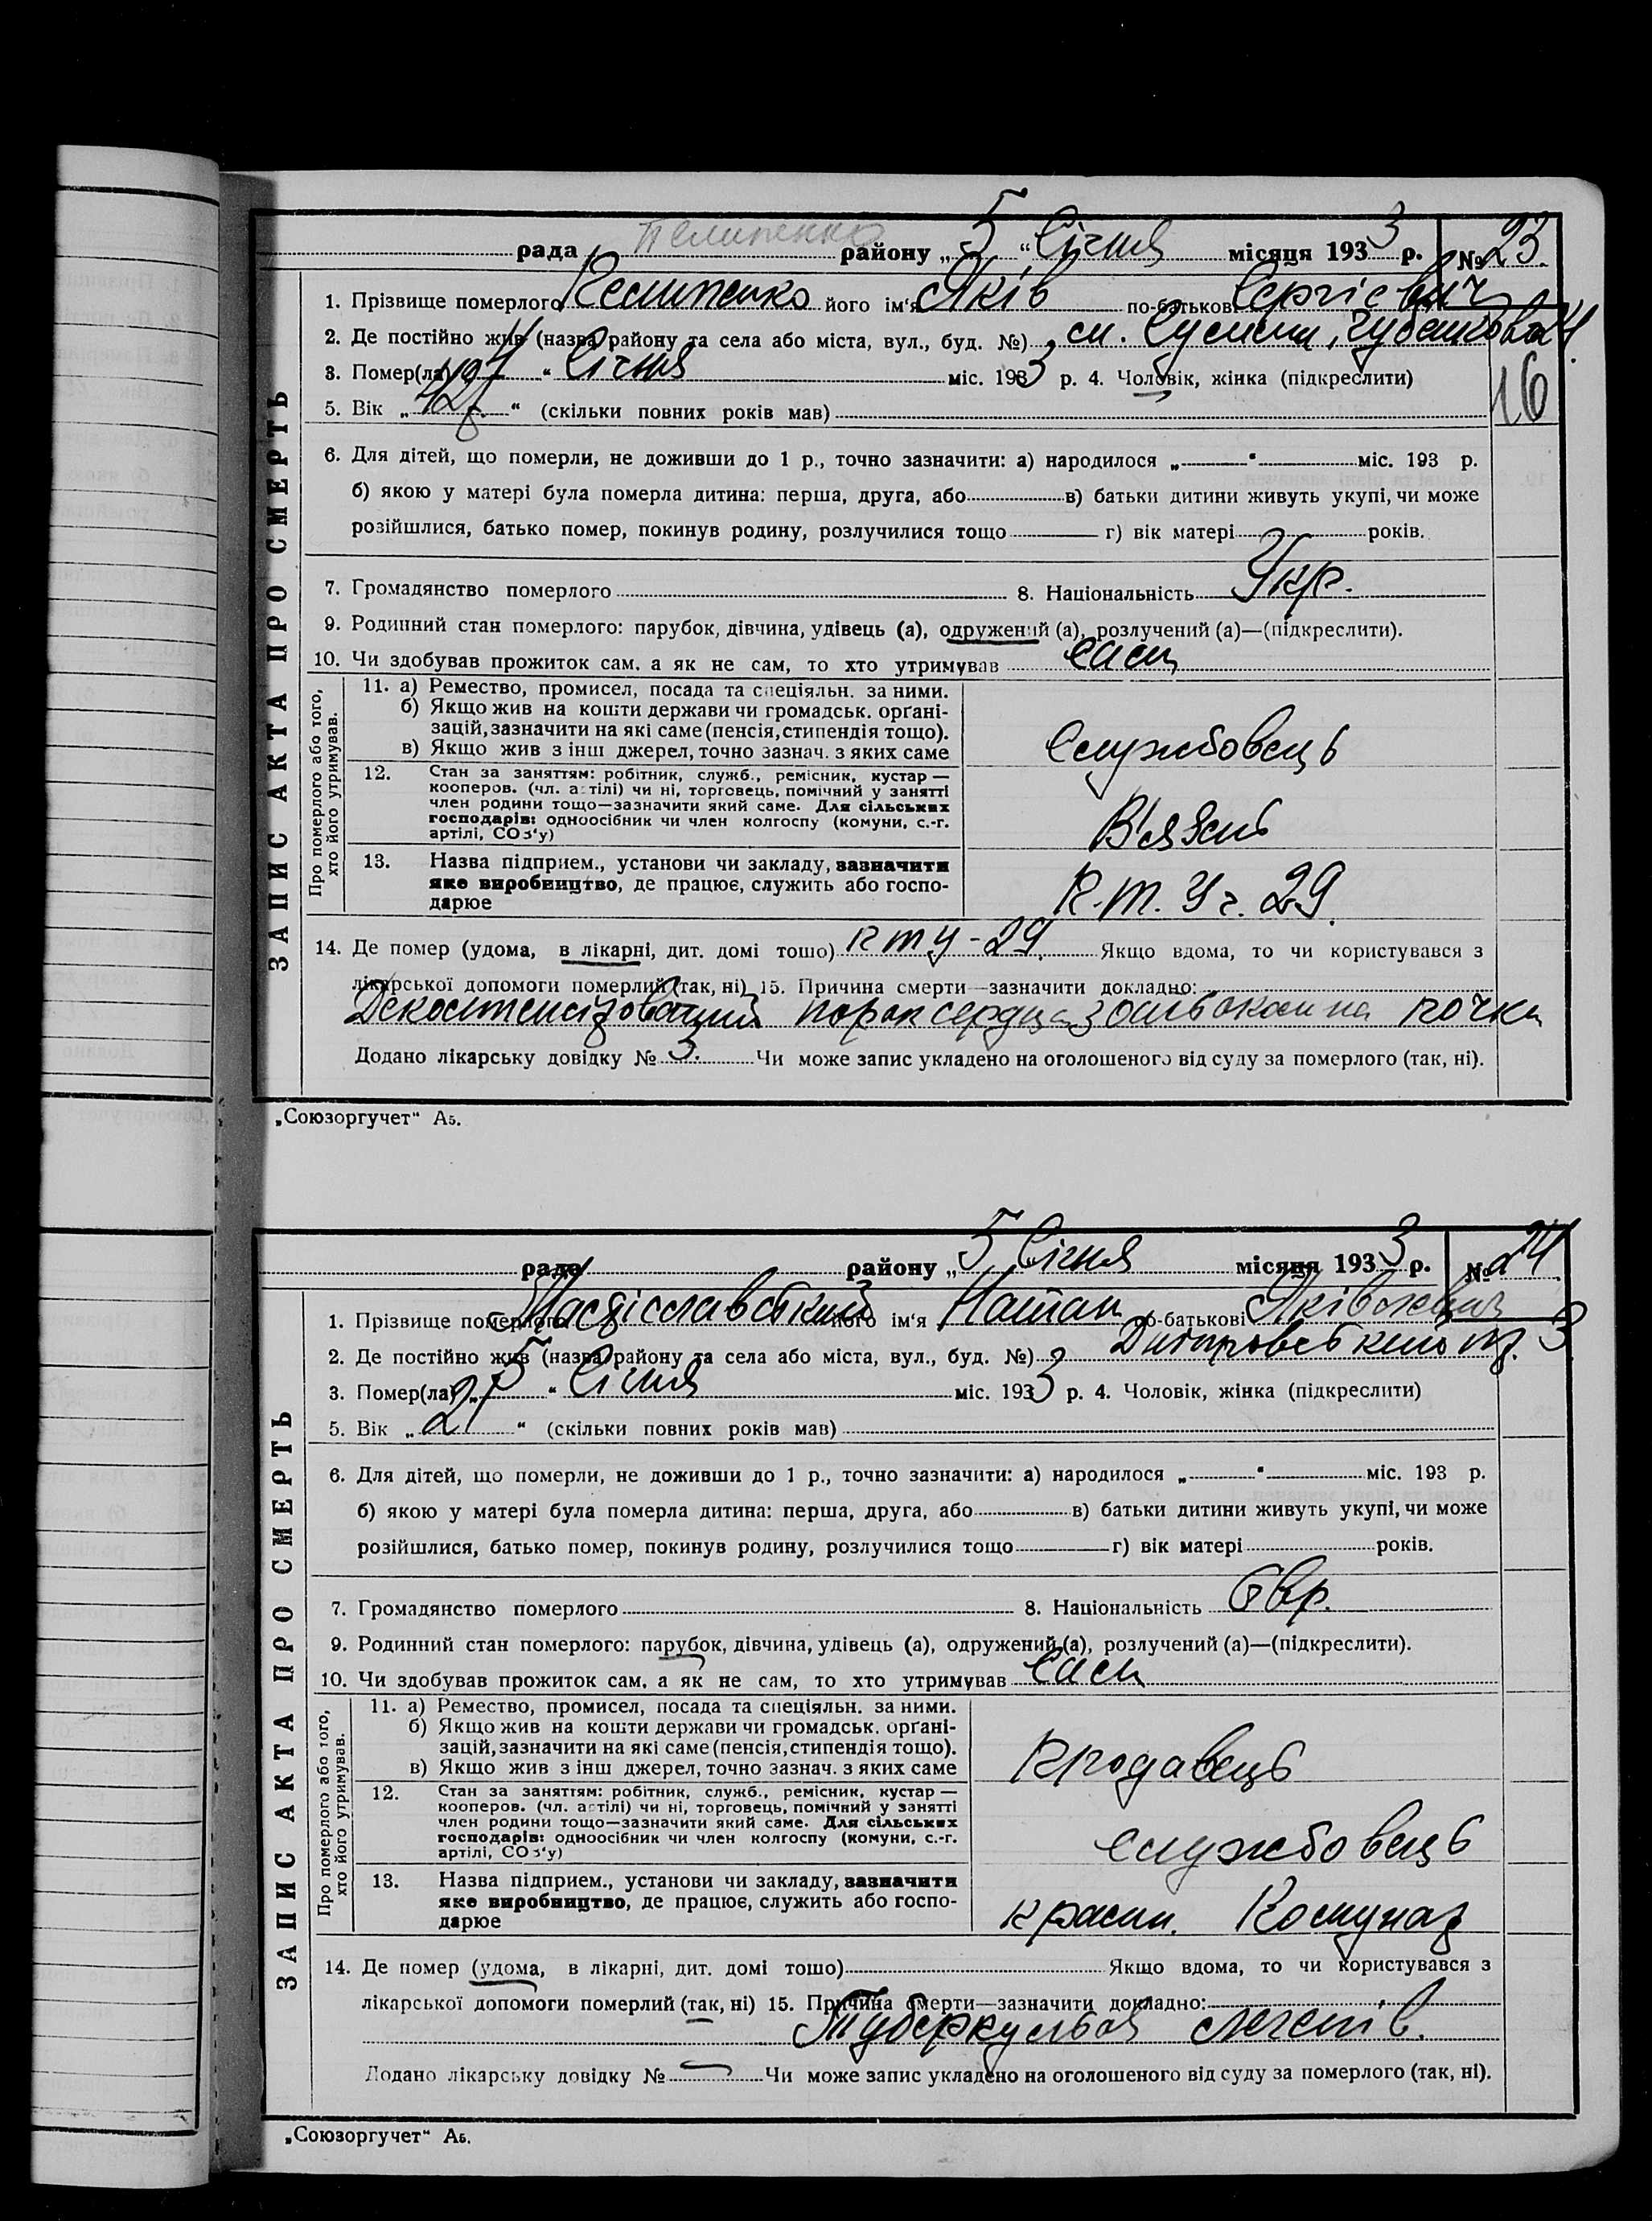 Пелипенко
рада районy „5“ Січня місяця 1933 р. № 23.
1. Прізвище померлого Пелипенко його ім'я Яків по-батькові Сергієвич
2. Де постійно жив (назва району та села або міста, вул., буд. №) см. Сумы, 24
3. Помер(ла) „4“ Січня міс. 1933 р. 4. Чоловік, жінка (підкреслити)
16
5. Вік „42 “ (скільки повних років мав)
6. Для дітей, що померли, не доживши до 1 р., точно зазначити: а) народилося „ “ міс. 193 р.
б) якою у матері була померла дитина: перша, друга, або в) батьки дитини живуть укупі, чи може
розійшлися, батько помер, покинув родину, розлучилися тощо г) вік матері років.
7. Громадянство померлого 8. Національність Укр.
9. Родинний стан померлого: парубок, дівчина, удівець (а), одружений (а), розлучений (а)—(підкреслити).
10. Чи здобував прожиток сам, а як не сам, то хто утримував сам
ЗАПИС АКТА ПРО СМЕРТЬ
Про померлого або того,
хто його утримував.
11. а) Ремество, промисел, посада та спеціяльн. за ними.
б) Якщо жив на кошти держави чи громадськ. орґані-
зацій, зазначити на які саме (пенсія, стипендія тощо).
в) Якщо жив з інш джерел, точно зазнач. з яких саме
Службовець
12. Стан за заняттям: робітник, служб., ремісник, кустар —
кооперов. (чл. артілі) чи ні, торговець, помічний у занятті
член родини тощо—зазначити який саме. Для сільських
господарів: одноосібник чи член колгоспу (комуни, с.-г.
артілі, СОЗ'у)
В'язень
13. Назва підприєм., установи чи закладу, зазначити
яке виробництво, де працює, служить або госпо-
дарює
К.т.У ч. 29.
14. Де помер (удома, в лікарні, дит. домі тошо) КТУ-29. Якщо вдома, то чи користувався з
лікарської допомоги померлий (так, ні) 15. Причина смерти—зазначити докладно:
порок сердца почки
Додано лікарську довідку № 3. Чи може запис укладено на оголошеного від суду за померлого (так, ні).
„Союзоргучет“ А5.
рада районy „5 Січня місяця 1933 р. № 24
1. Прізвище померлого його ім'я Натан по-батькові Яківлевич
2. Де постійно жив (назва району та села або міста, вул., буд. №) 3
3. Помер(ла) „5“ Січня міс. 1933 р. 4. Чоловік, жінка (підкреслити)
5. Вік „27“ (скільки повних років мав)
6. Для дітей, що померли, не доживши до 1 р., точно зазначити: а) народилося „ “ міс. 193 р.
б) якою у матері була померла дитина: перша, друга, або в) батьки дитини живуть укупі, чи може
розійшлися, батько помер, покинув родину, розлучилися тощо г) вік матері років.
7. Громадянство померлого 8. Національність Євр.
9. Родинний стан померлого: парубок, дівчина, удівець (а), одружений (а), розлучений (а)—(підкреслити).
10. Чи здобував прожиток сам, а як не сам, то хто утримував сам
ЗАПИС АКТА ПРО СМЕРТЬ
Про померлого або того,
хто його утримував.
11. а) Ремество, промисел, посада та спеціяльн. за ними.
б) Якщо жив на кошти держави чи громадськ. орґані-
зацій, зазначити на які саме (пенсія, стипендія тощо).
в) Якщо жив з інш джерел, точно зазнач. з яких саме
продавець
12. Стан за заняттям: робітник, служб., ремісник, кустар —
кооперов. (чл. артілі) чи ні, торговець, помічний у занятті
член родини тощо—зазначити який саме. Для сільських
господарів: одноосібник чи член колгоспу (комуни, с.-г.
артілі, СОЗ'у)
службовець
13. Назва підприєм., установи чи закладу, зазначити
яке виробництво, де працює, служить або госпо-
дарює
14. Де помер (удома, в лікарні, дит. домі тошо) Якщо вдома, то чи користувався з
лікарської допомоги померлий (так, ні) 15. Причина смерти—зазначити докладно:
Туберкульоз легенів.
Додано лікарську довідку № Чи може запис укладено на оголошеного від суду за померлого (так, ні).
„Союзоргучет“ А5.